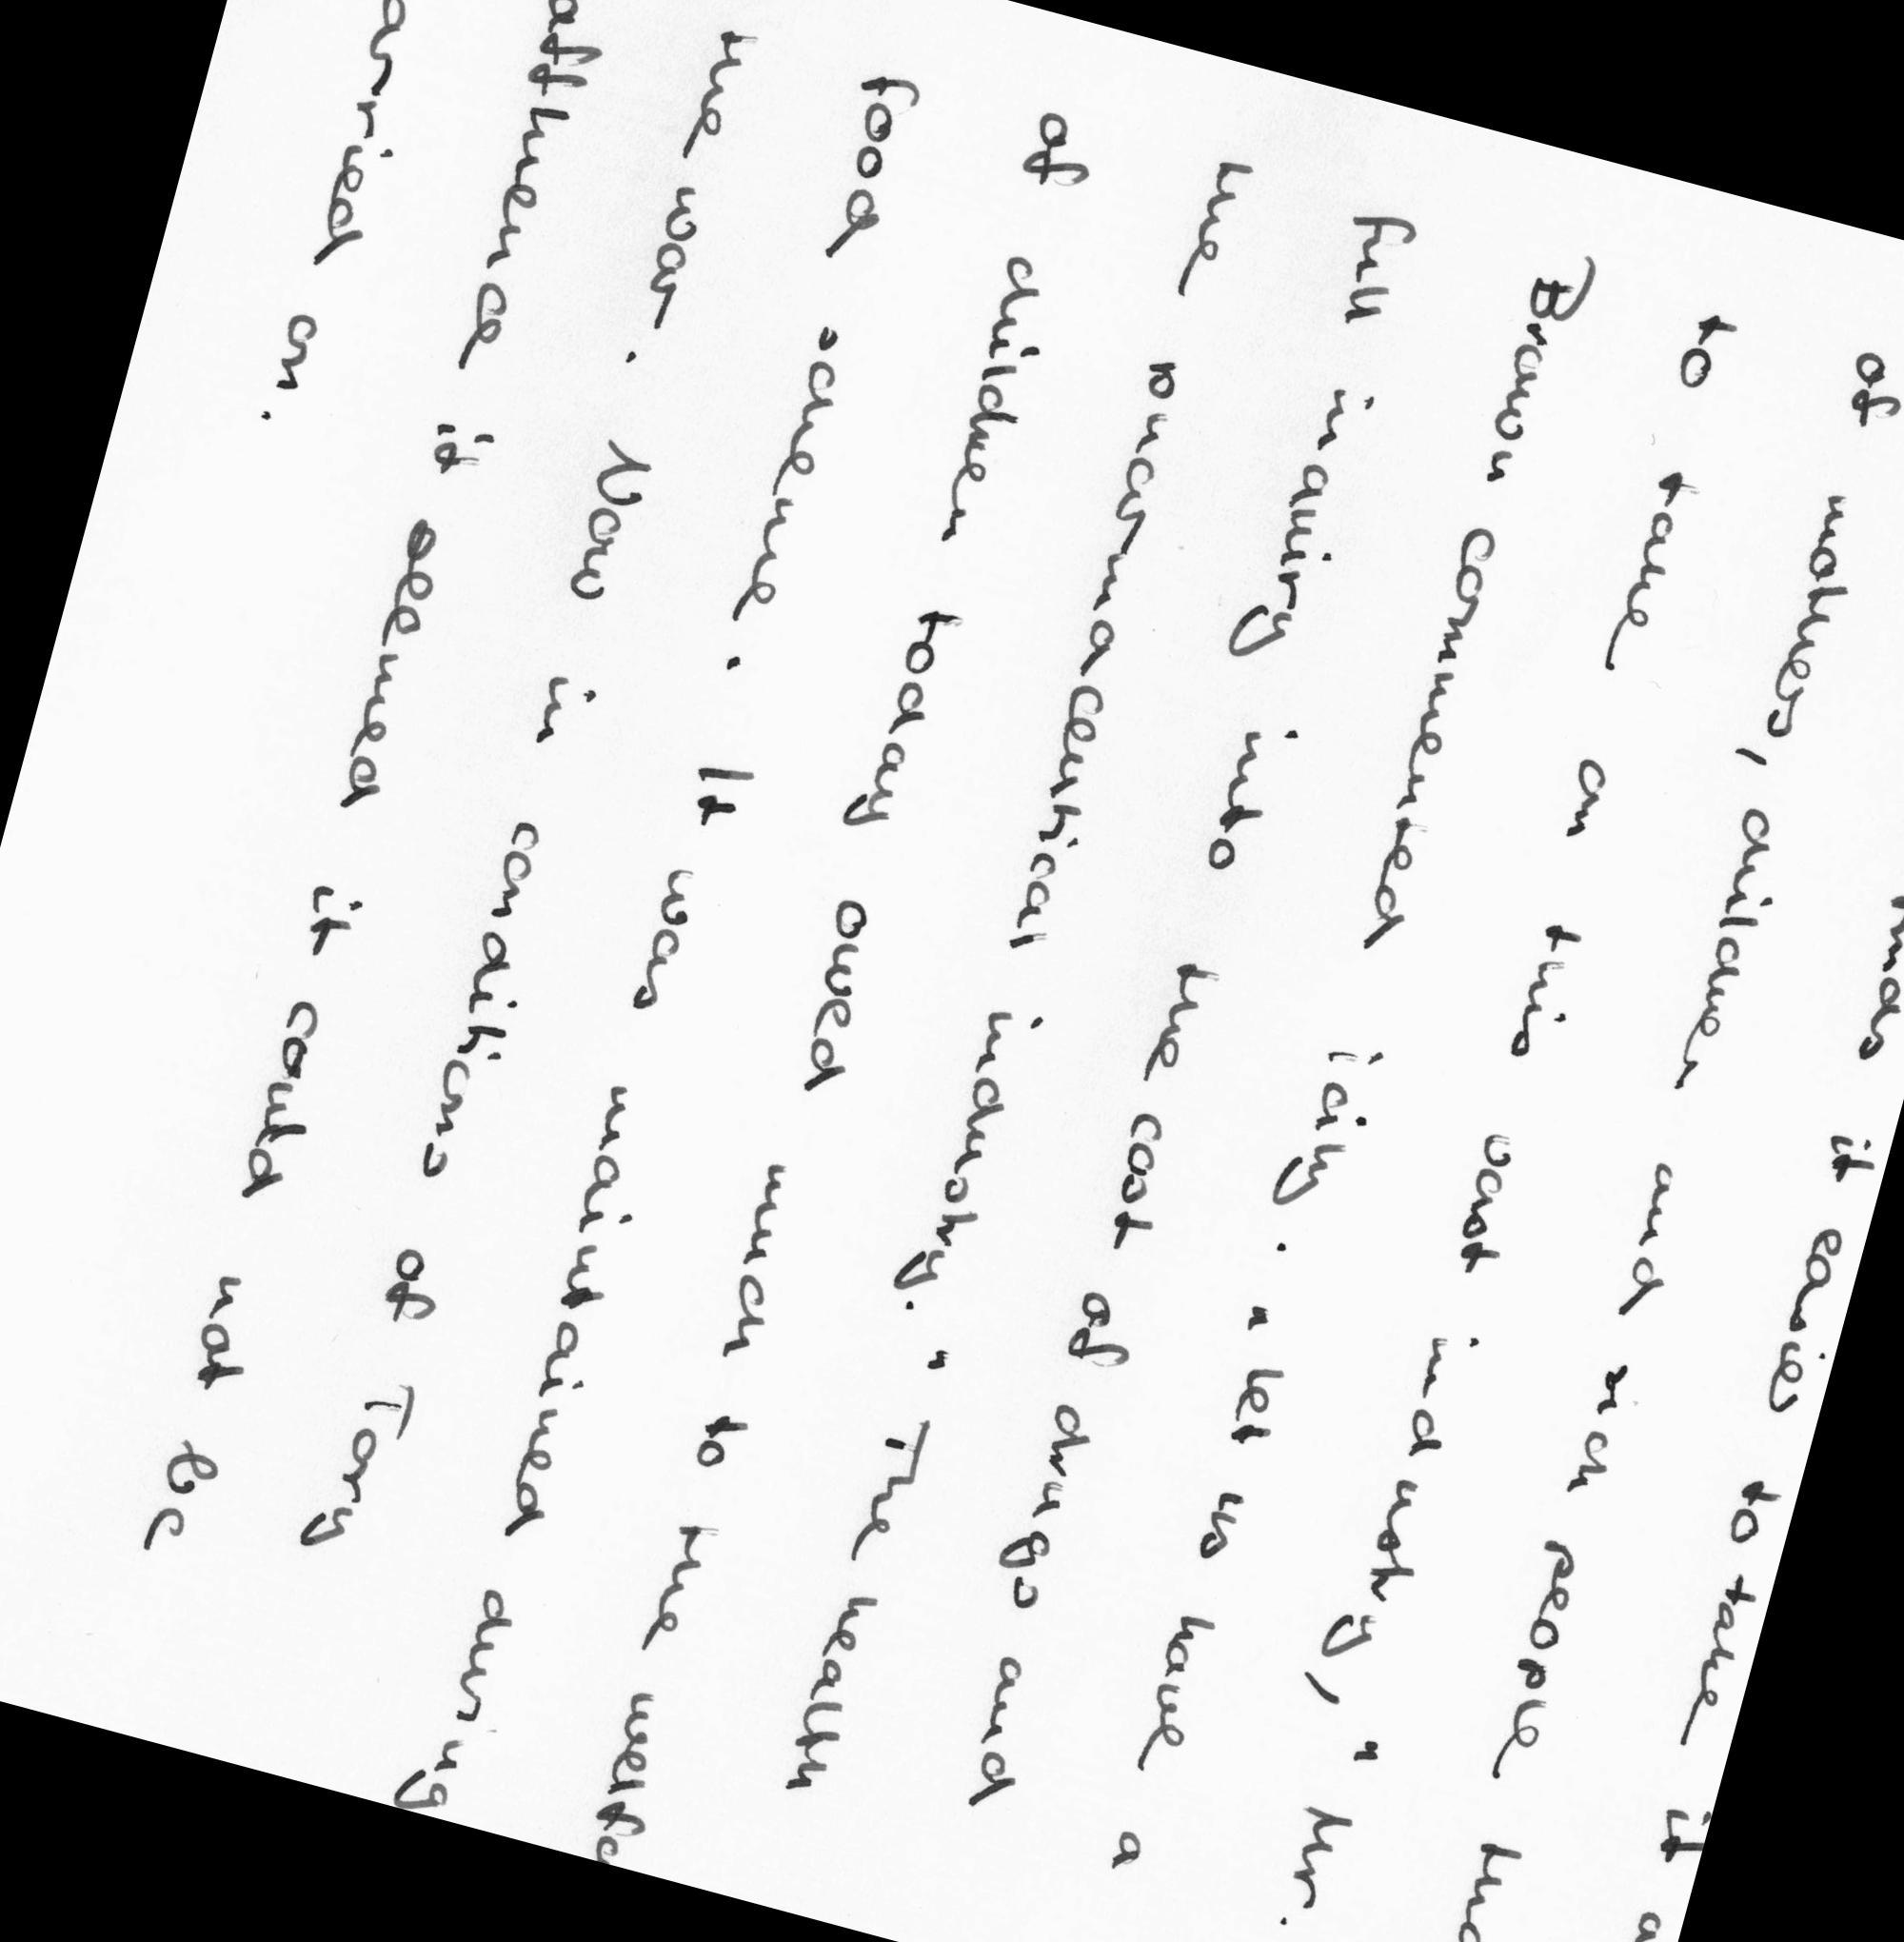 it easier to take it
of mothers, children and rich people
to take on this vast industry," Mr.
Brown commented icily. "Let us have a
full inquiry into the cost of drugs and
the pharmaceutical industry." The health
of children today owed much to the
food scheme. It was maintained during
the war. Now in conditions of Tory
affluence it seemed it could not be
carried on.